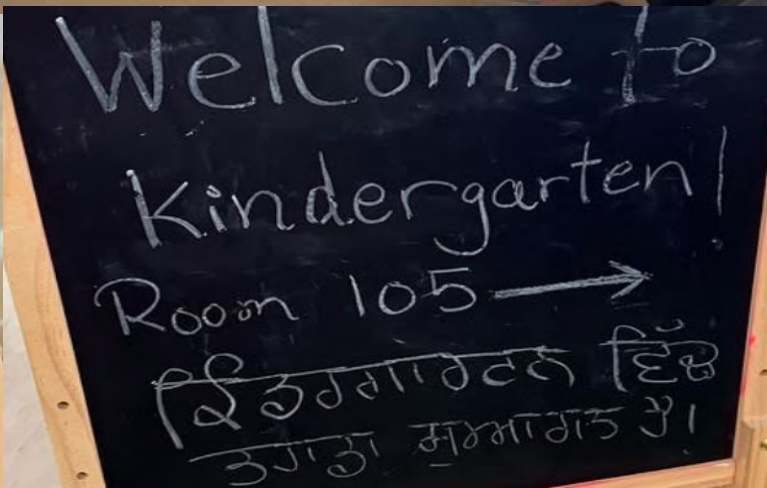 Welcome to
Kindergarten!
Room 105 →
ਕਿੰਡਰਗਾਰਟਨ ਵਿੱਚ
ਤੁਹਾਡਾ ਸੁਆਗਤ ਹੈ।